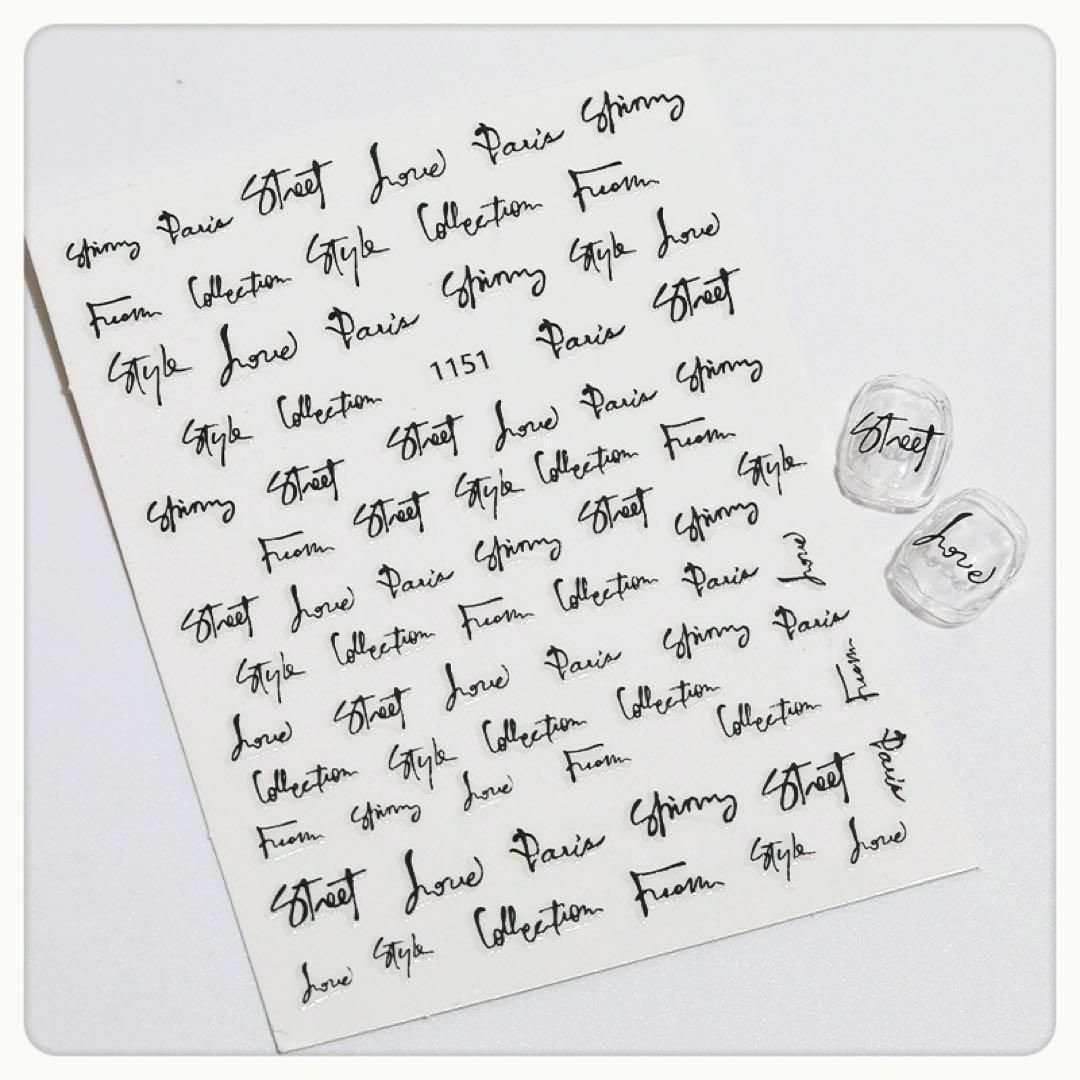 Paris Street Love Paris
From Collection Style Collection From
Style Love Paris Style Love
Style Collection 1151 Paris Street
Street Street Love Paris
From Street Style Collection From
Street Love Paris Street Style
Style Collection From Collection Paris Love
Love Street Love Paris Paris
Collection Style Collection Collection Collection From
From Love From
Street Love Paris Street Paris
Love Style Collection From Style Love
Street
Love